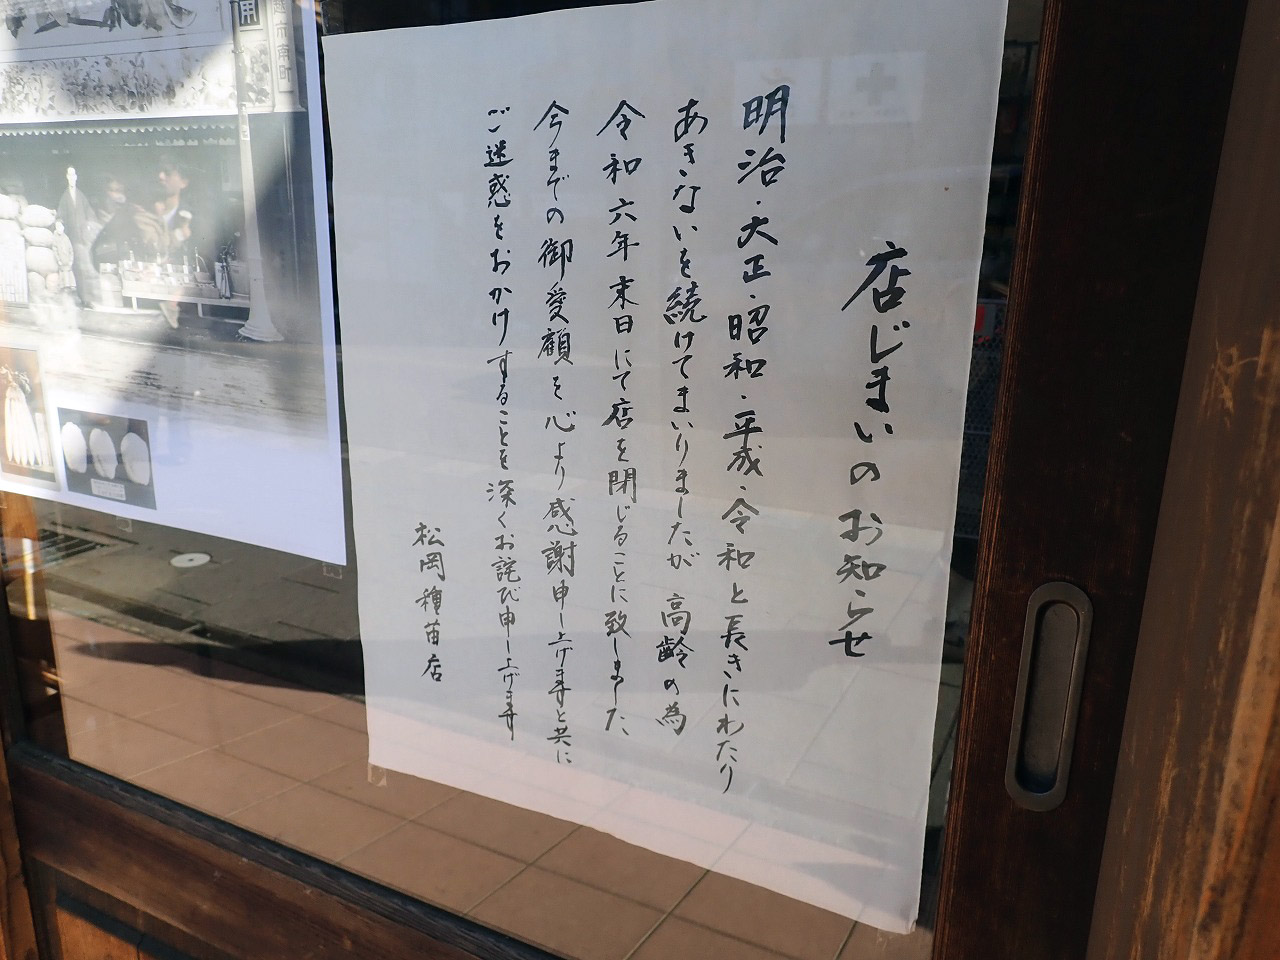 店じまいのお知らせ
明治・大正・昭和・平成・令和と長きにわたり
あきないを続けてまいりましたが 高齢の為
令和六年末日にて店を閉じることに致しました
今までの御愛顧を心より感謝申し上げますと共に
ご迷惑をおかけすることを深くお詫び申し上げます
松岡種苗店